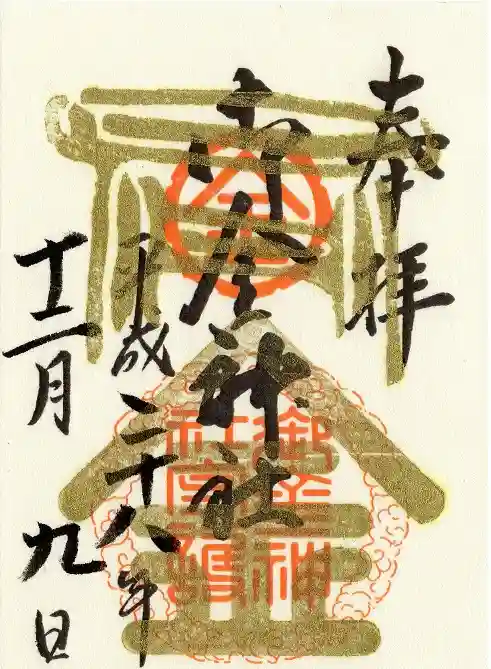 奉拝
御金神社
平成二十八年
十二月九日
金
御金神
社